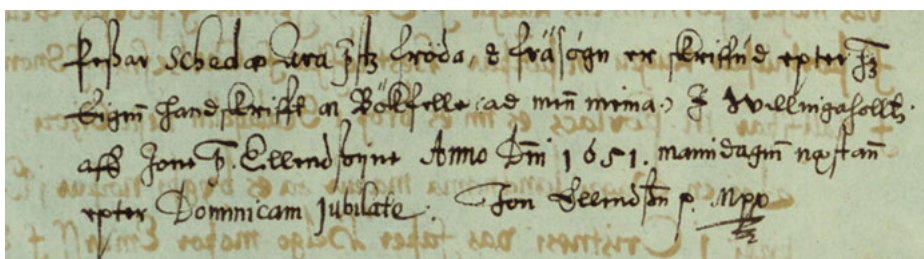 Þessar Schedæ Ara p̄stz froda, & fräsögn er skriffud epter h̄z
Eigin̄ handskrifft a Bökfelle (ad men̄ meina) J Villingahollte
aff Jone p̄. Ellendssyne Anno Dn̄i 1651. mänudagin̄ næstan̄
epter Dominicam Jubilate. Jon Ellendss̄n p. Mpp